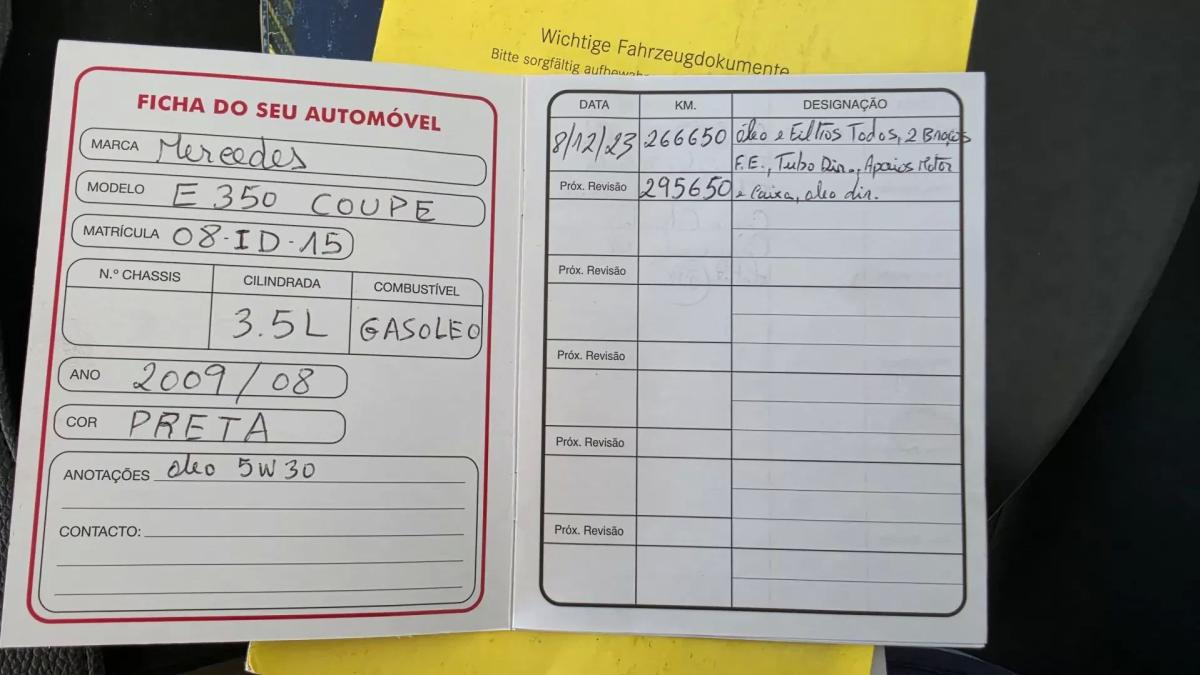 Wichtige Fahrzeugdokumente
Bitte sorgfältig aufbewa
FICHA DO SEU AUTOMÓVEL
MARCA Mercedes
MODELO E 350 COUPE
MATRÍCULA 08-ID-15
N.º CHASSIS CILINDRADA COMBUSTÍVEL
3.5L GASOLEO
ANO 2009/08
COR PRETA
ANOTAÇÕES oleo 5W30
CONTACTO:
DATA KM. DESIGNAÇÃO
8/12/23 266650 óleo e Filtros Todos, 2 Braços
F.E., Tubo Dir., Apoios Motor
Próx. Revisão 295650 e Caixa, oleo dir.
Próx. Revisão
Próx. Revisão
Próx. Revisão
Próx. Revisão